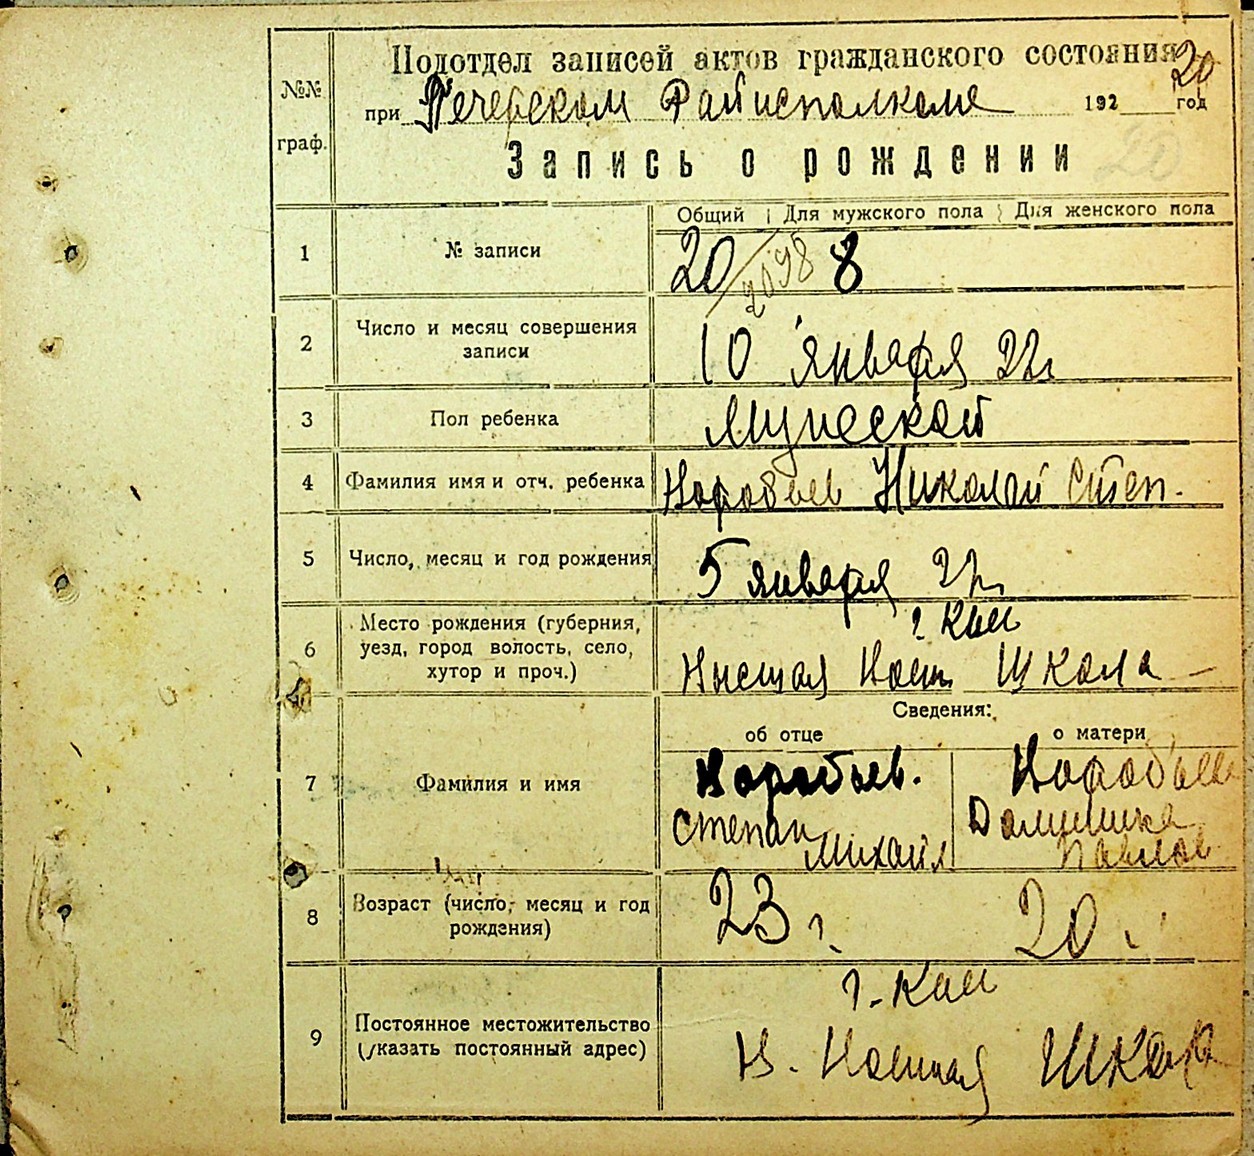 Подотдел записей актов гражданского состояния
20
№№ граф.
при Печерском Райисполкоме 192 год
Запись о рождении
20
Общий Для мужского пола Для женского пола
1 № записи 20 8
2 Число и месяц совершения записи 10 января 22г
3 Пол ребенка Мужеской
4 Фамилия имя и отч. ребенка Воробьев Николай Степ.
5 Число, месяц и год рождения 5 января 22г
6 Место рождения (губерния, уезд, город волость, село, хутор и проч.) г. Киев
Высшая Воен Школа
Сведения:
об отце о матери
7 Фамилия и имя Воробьев. Воробьева
Степан Михайл
Павлов
8 Возраст (число, месяц и год рождения) 23 г. 20 г.
9 Постоянное местожительство (указать постоянный адрес) г. Киев
В. Военная Школа